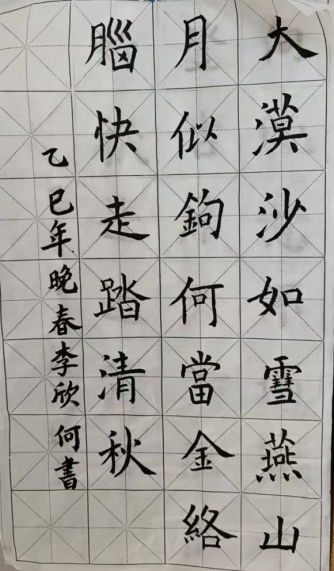 大漠沙如雪燕山
月似鉤何當金絡
腦快走踏清秋
乙巳年晚春李欣何書